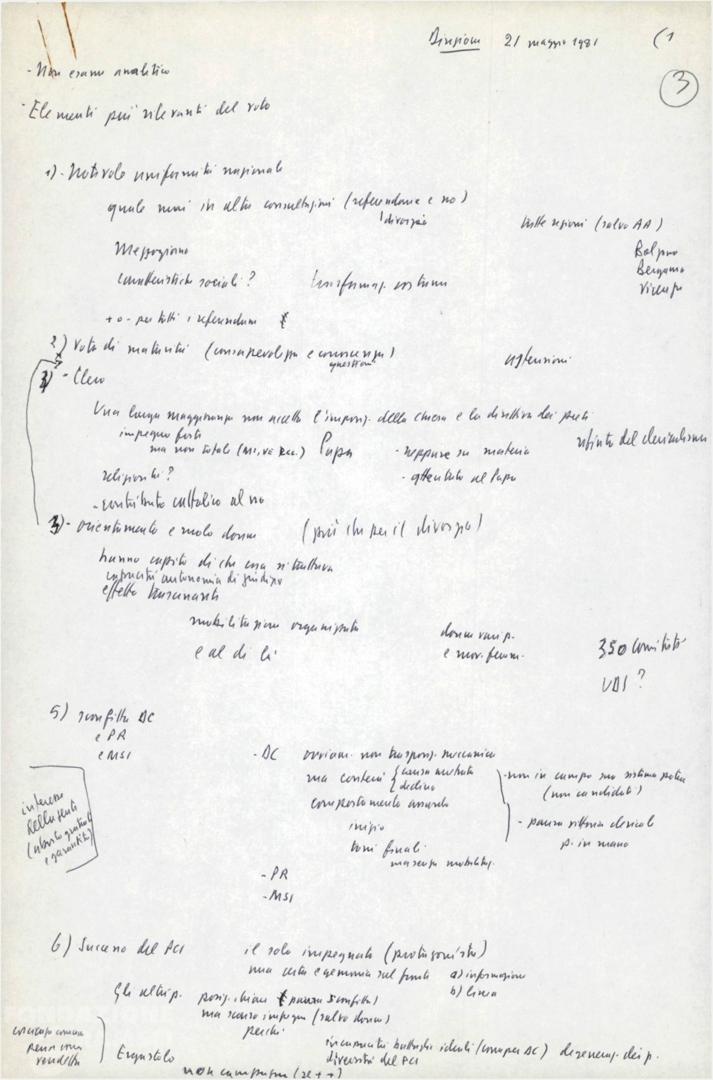 Direzione 21 maggio 1981 (1
3
- Non esame analitico
- Elementi più rilevanti del voto
1) - Notevole uniformità nazionale
quale mai in altre consultazioni (referendarie e no)
divorzio
tutte regioni (salvo AA)
Bolzano
Bergamo
Vicenza
Mezzogiorno
caratteristiche sociali? trasformaz. costumi
+ o - per tutti i referendum
2) Voto di maturità (consapevolezza e conoscenza)
questioni
astensioni
3) - Clero
Una larga maggioranza non accetta l'imposiz. della chiesa e la direttiva dei preti
impegno forte
ma non totale
Papa
- neppure su materia
- attentato al Papa
rifiuto del clericalismo
religiosità?
- contributo cattolico al no
- orientamento e ruolo donne (più che per il divorzio)
hanno capito di che cosa si trattava
capacità autonomia di giudizio
effetto trascinante
mobilitazione organizzata
e al di là
donne vari p.
e mov. femm.
350 Comitati
UDI?
5) sconfitta DC
e PR
e MSI
- DC ovviam. non trasposiz. meccanica
ma conferma
declino
comportamento
inizio
toni finali
massenza mobilitaz.
- non in campo suo sistema potere
(non candidati)
- paura vittoria clericale
p. in mano
- PR
- MSI
interesse
della gente
(aborto gratuito
e garantito)
6) Successo del PCI il solo impegnato (protagonista)
una certa egemonia sul fronte
a) informazione
b) linea
Gli altri p. posiz. chiara (paura sconfitta)
ma scarso impegno (salvo donne)
perché
vendetta
Ergastolo
battaglie ideali (come per DC) degeneraz. dei p.
diversità del PCI
non campagna (se + +)